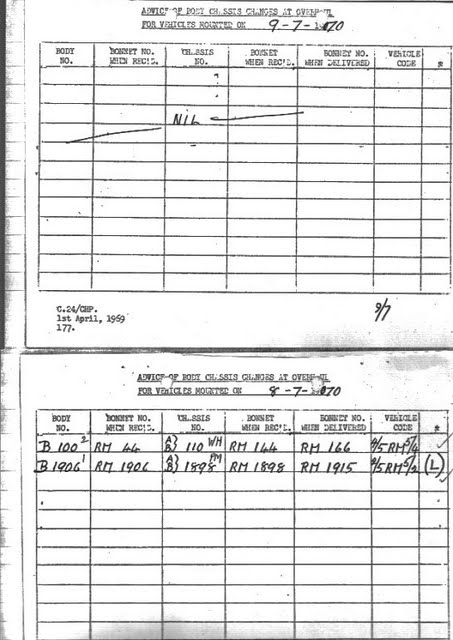 ADVICE OF BODY CHASSIS CHANGES AT OVERHAUL
FOR VEHICLES MOUNTED ON 9-7-1970
BODY NO. BONNET NO. WHEN REC'D. CHASSIS NO. BONNET WHEN REC'D. BONNET NO. WHEN DELIVERED VEHICLE CODE *
NIL
C.24/CHP.
1st April, 1969
177.
9/7
ADVICE OF BODY CHASSIS CHANGES AT OVERHAUL
FOR VEHICLES MOUNTED ON 8-7-1970
BODY NO. BONNET NO. WHEN REC'D. CHASSIS NO. BONNET WHEN REC'D. BONNET NO. WHEN DELIVERED VEHICLE CODE *
B 100 2 RM 44 A) B) 110 WH RM 144 RM 166 4/5 RM 5/4
B 1906 RM 1906 A) B) 1898 PM RM 1898 RM 1915 4/5 RM 5/2 (L)